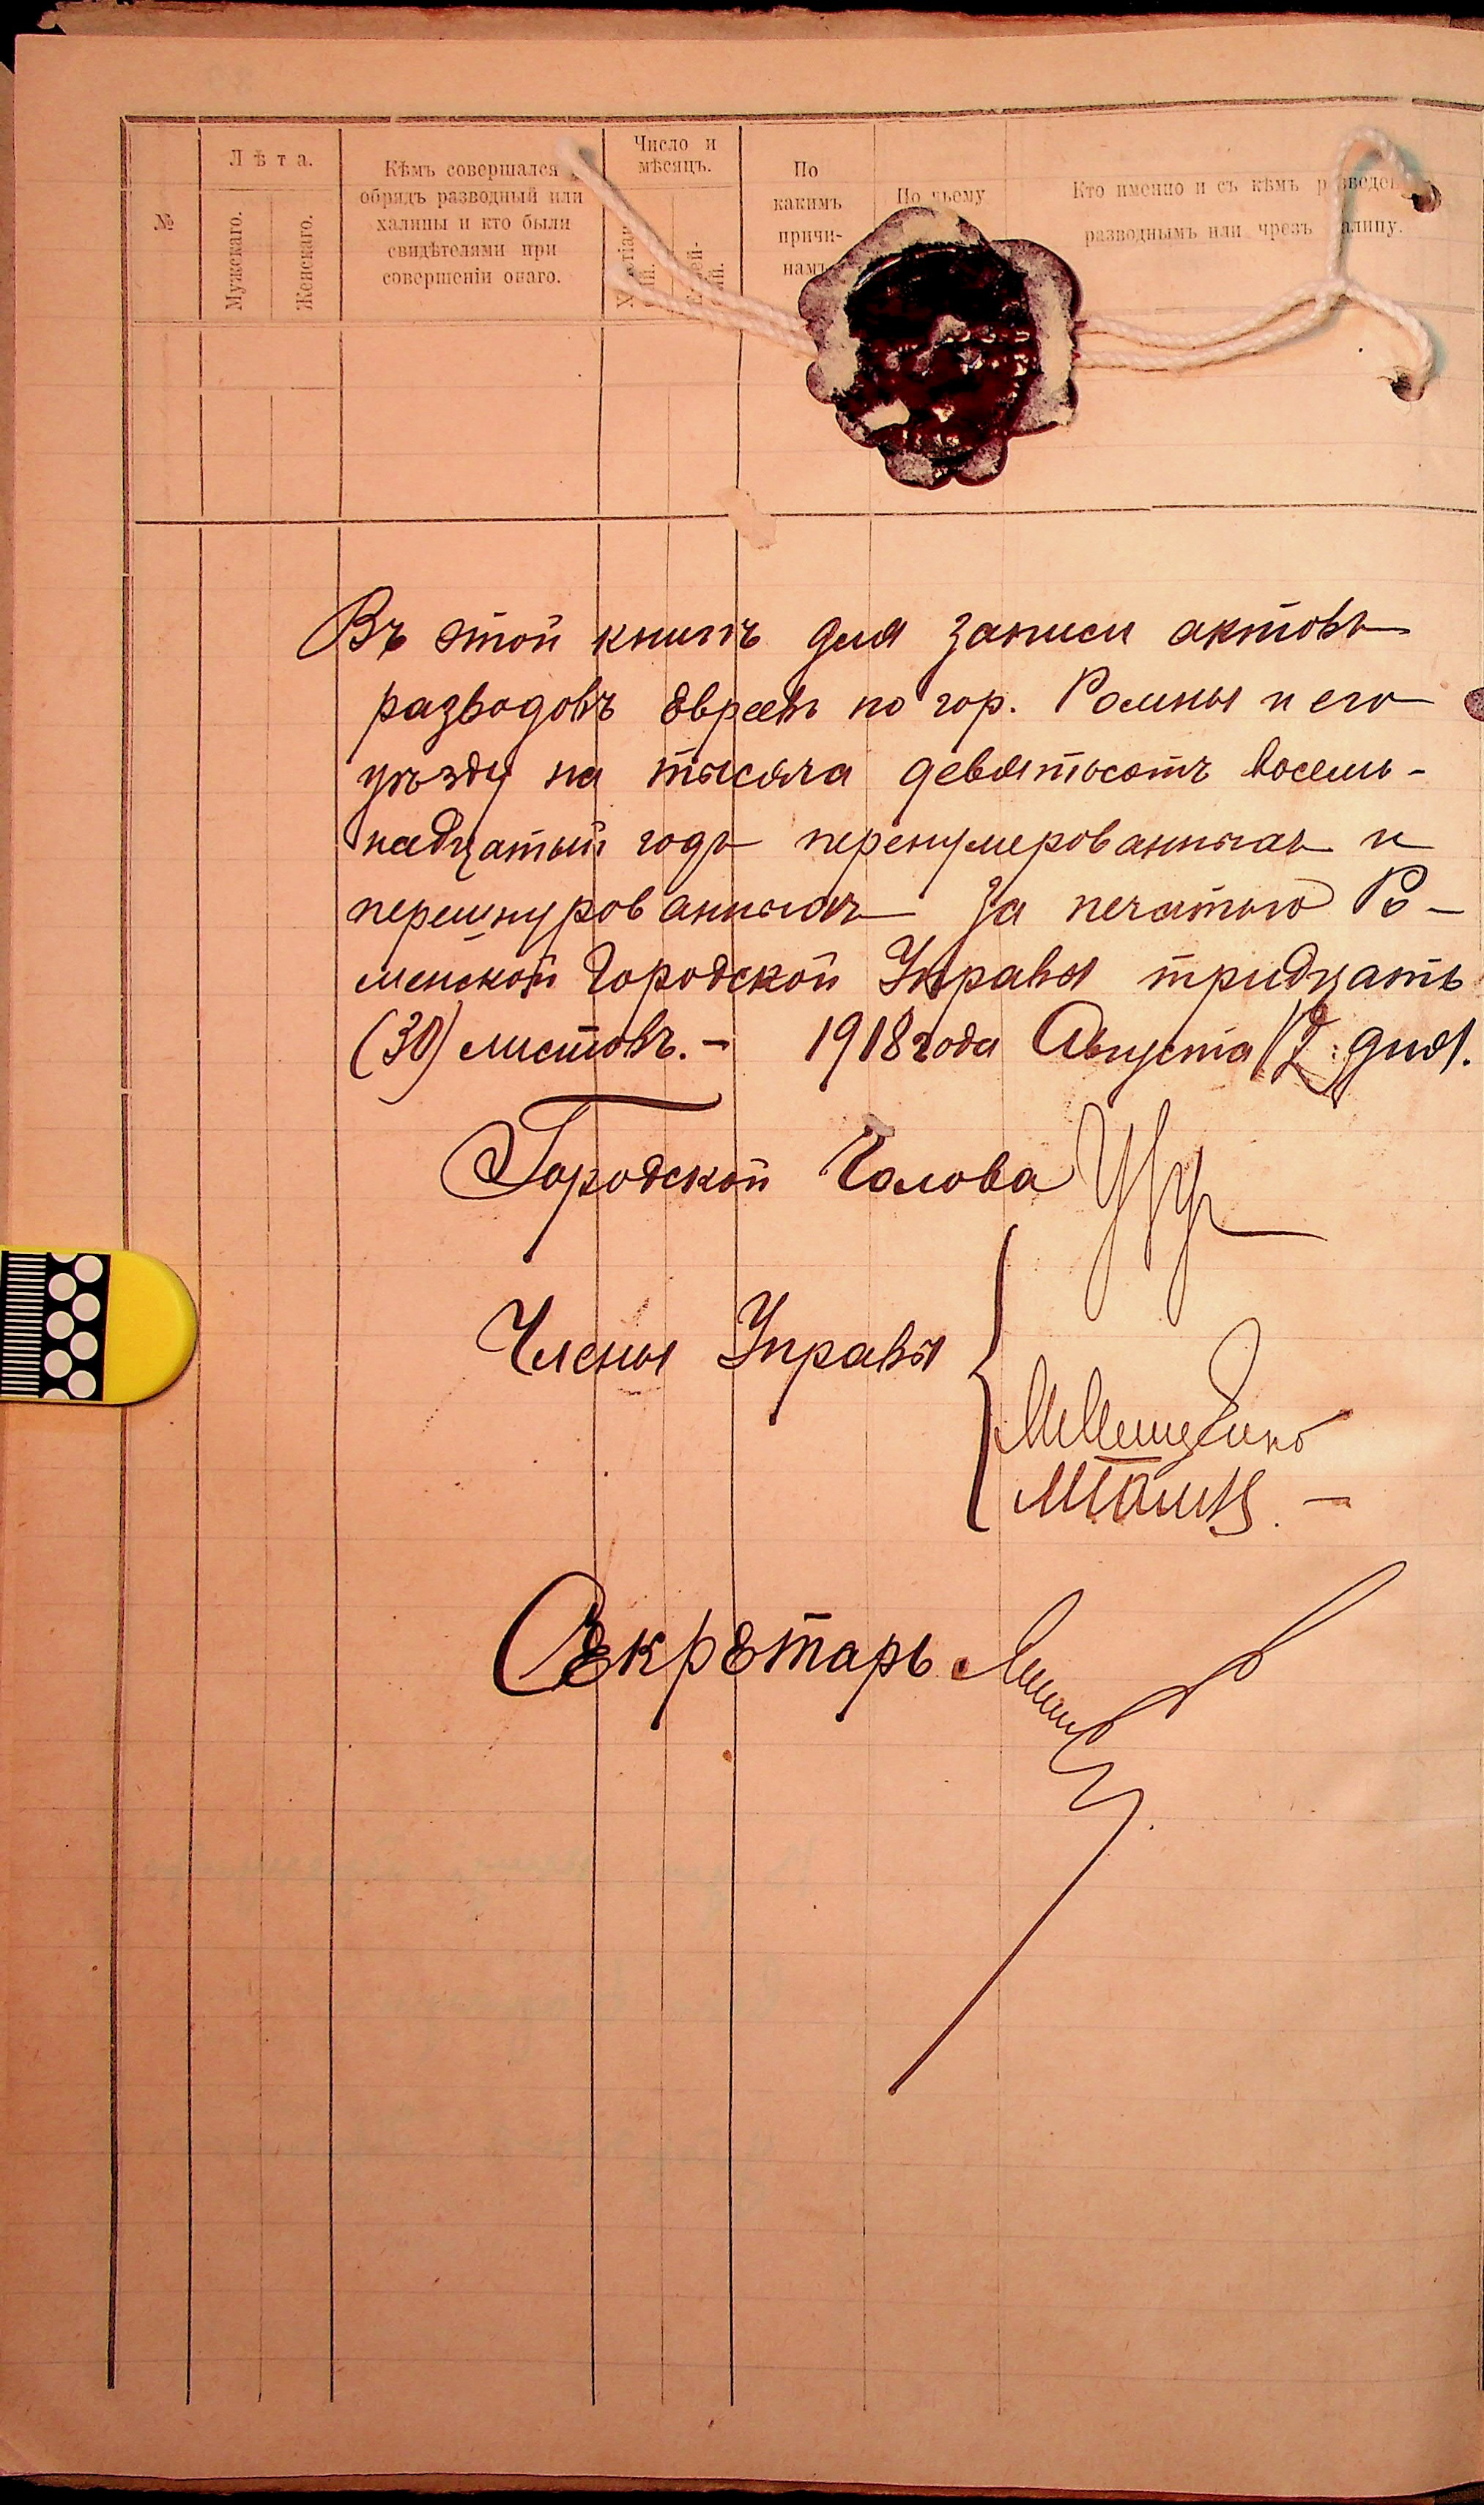 №
Лѣта.
Мужскаго.
Женскаго.
Кѣмъ совершался
обрядъ разводный или
халицы и кто были
свидѣтелями при
совершеніи онаго.
Число и
мѣсяцъ.
По
какимъ
причи-
намъ
По чьему
Кто именно и съ кѣмъ
разводнымъ или чрезъ
Въ этой книгѣ для записи актовъ
разводовъ Евреевъ по гор. Ромны и его
уѣзду на тысяча девятьсотъ восемь-
надцатый годъ перенумерованныхъ и
перешнурованныхъ за печатью Ро-
менской Городской Управы тридцать
(30) листовъ. — 1918 года Августа 12 дня.
Городской Голова
Члены Управы
Секретарь